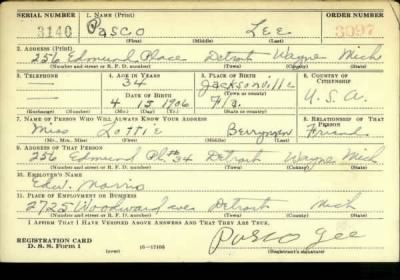 SERIAL NUMBER 1. NAME (Print) ORDER NUMBER
3140 Pasco Lee 3097
(First) (Middle) (Last)
2. ADDRESS (Print)
256 Edmund Place Detroit Wayne Mich
(Number and street or R. F. D. number) (Town) (County) (State)
3. TELEPHONE 4. AGE IN YEARS 5. PLACE OF BIRTH 6. COUNTRY OF CITIZENSHIP
34 Jacksonville
DATE OF BIRTH (Town or county)
4 15 1906 Fla. U.S.A.
(Exchange) (Number) (Mo.) (Day) (Yr.) (State or country)
7. NAME OF PERSON WHO WILL ALWAYS KNOW YOUR ADDRESS 8. RELATIONSHIP OF THAT PERSON
Miss Lottie Friend
(Mr., Mrs., Miss) (First) (Middle) (Last)
9. ADDRESS OF THAT PERSON
256 Edmund Pl. #34 Detroit Wayne Mich.
(Number and street or R. F. D. number) (Town) (County) (State)
10. EMPLOYER'S NAME
Edw. Norris
11. PLACE OF EMPLOYMENT OR BUSINESS
2725 Woodward ave Detroit Mich
(Number and street or R. F. D. number) (Town) (County) (State)
I AFFIRM THAT I HAVE VERIFIED ABOVE ANSWERS AND THAT THEY ARE TRUE.
REGISTRATION CARD Pasco Lee
D. S. S. Form 1 (over) 16—17105 (Registrant's signature)